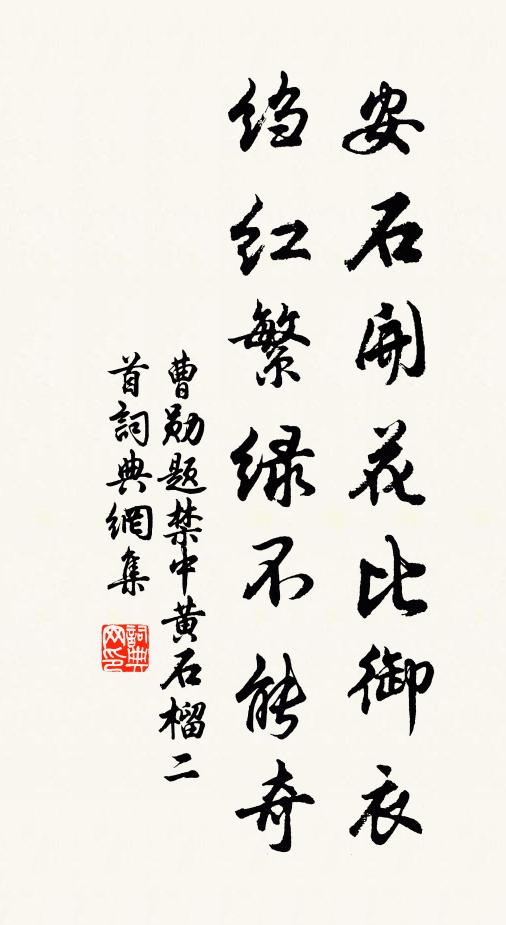 安石開花比御衣
绉红繁绿不能奇
曹勋题禁中黄石榴二
首詞典網集
詞典网印